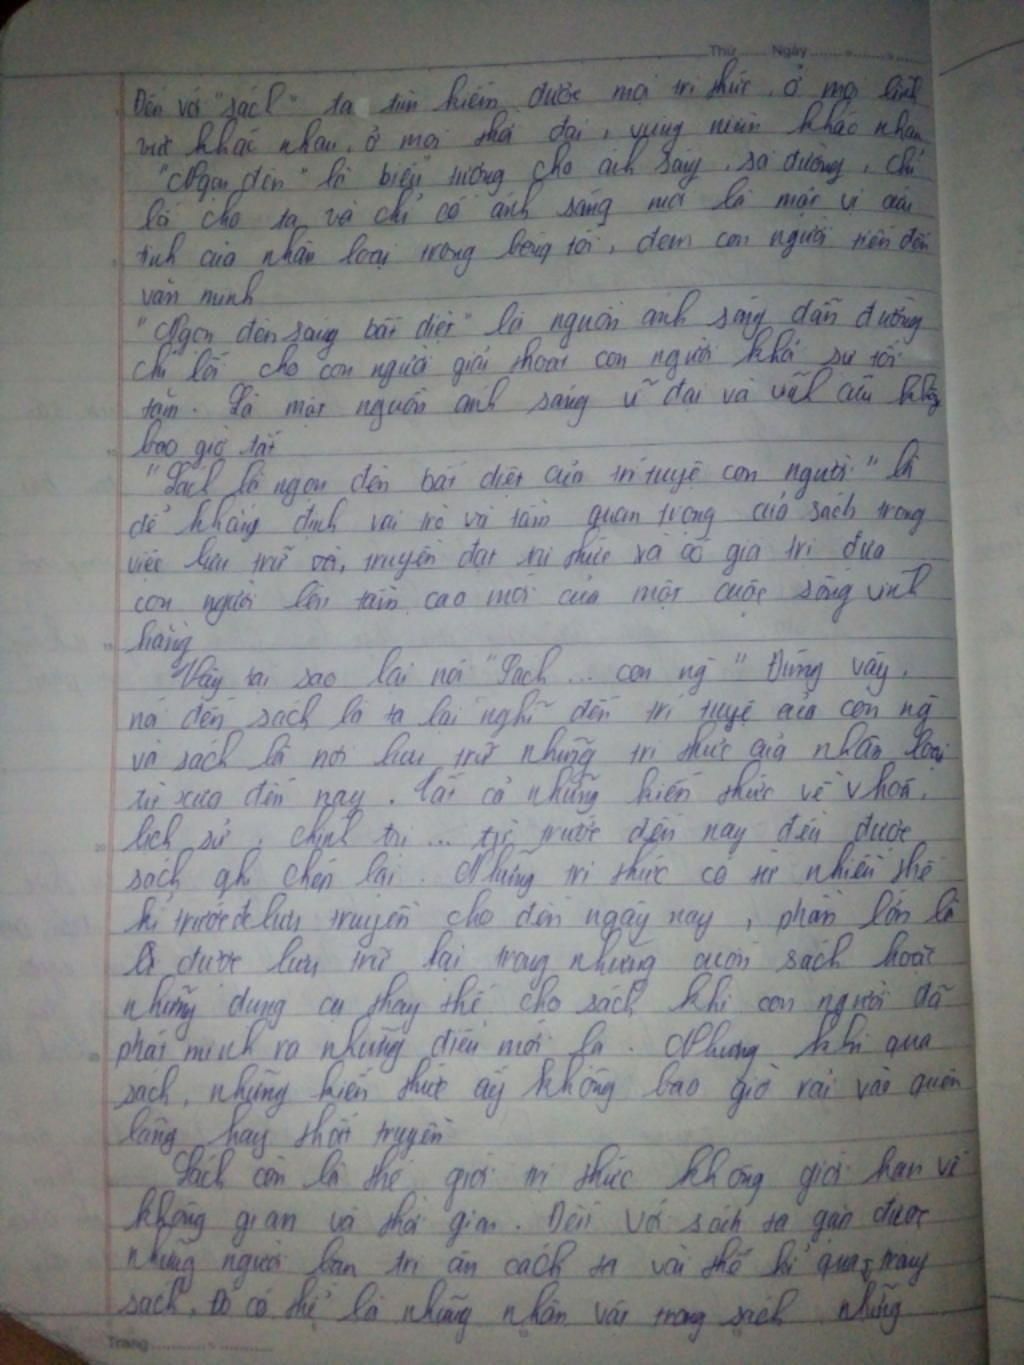 Thứ ........ Ngày ........
Đến với "sách" ta tìm kiếm được mọi tri thức, ở mọi lĩnh
vực khác nhau, ở mọi thời đại, vùng miền khác nhau
"Ngọn đèn" là biểu tượng cho ánh sáng, soi đường, chỉ
lối cho ta và chỉ có ánh sáng mới là mặc vị
tinh của nhân loại trong bóng tối, đem con người tiến đến
văn minh
"Ngọn đèn sáng bất diệt" là nguồn ánh sáng dẫn đường
chỉ lối cho con người giải thoát con người khỏi sự tối
tăm. Là một nguồn ánh sáng vĩ đại và vĩnh cửu không
bao giờ tắt
"Sách là ngọn đèn bất diệt của trí tuệ con người" là
để khẳng định vai trò và tầm quan trọng của sách trong
việc lưu trữ và, truyền đạt tri thức và có giá trị đưa
con người lên tầm cao mới của một cuộc sống vĩnh
hằng
Vậy tại sao lại nói "Sách ... con ng" Đúng vậy,
nói đến sách là ta lại nghĩ đến trí tuệ của con ng
và sách là nơi lưu trữ những tri thức của nhân loại
từ xưa đến nay. Tất cả những kiến thức về vhoá,
lịch sử, chính trị ... từ trước đến nay đều được
sách ghi chép lại. Những tri thức có từ nhiều thế
kỉ trước để lưu truyền cho đến ngày nay, phần lớn là
là được lưu trữ lại trong những cuốn sách hoặc
những dụng cụ thay thế cho sách khi con người đã
phát minh ra những điều mới lạ. Nhưng khi qua
sách, những kiến thức ấy không bao giờ rơi vào quên
lãng hay thất truyền
Sách còn là thế giới tri thức không giới hạn về
không gian và thời gian. Đến với sách ta gặp được
những người bạn tri ân cách ta vài thế kỉ qua trang
sách. Đó có thể là những nhân vật trong sách những
Trang ............